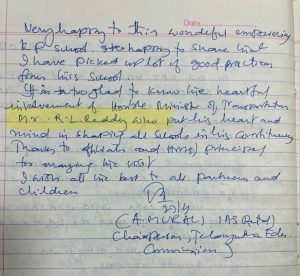 Date
Very happy to this wonderful empowering
K.P School. Also happy to share that
I have picked up lot of good practices
from this School.
It is so glad to know the heartful
involvement of Honble Minister of Transportation
Mr. R.L. Reddy who put his heart and
mind in shaping all schools in his Constituency
Thanks to officials and HMs/ principals
for arranging the visit
I wish all the best to all partners and
children
27/4
(A. MURALI) IAS (Retd)
Chairperson, Telangana Edn.
Commission